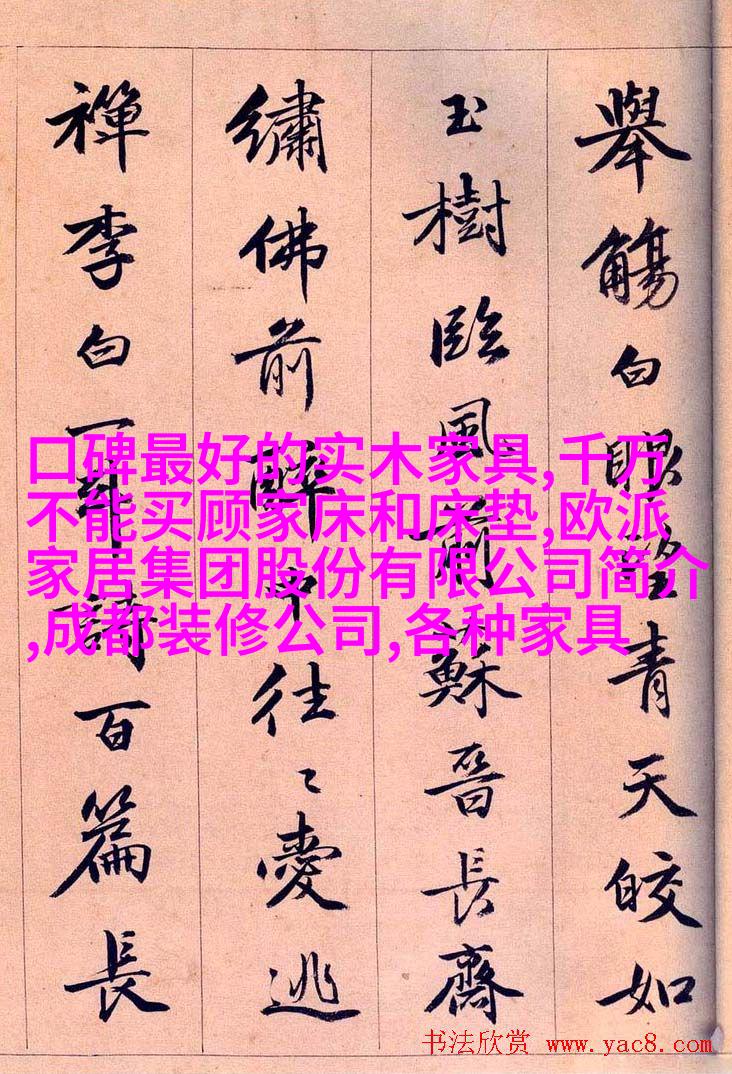 舉觴白眼望青天皎如
玉樹臨風前蘇晉長齋
繡佛前醉中往〻愛逃
禪李白一斗詩百篇長
口碑最好的实木家具,千万
不能买顾家床和床垫,欧派
家居集团股份有限公司简介
,成都装修公司,各种家具
书法欣赏 www.yac8.com